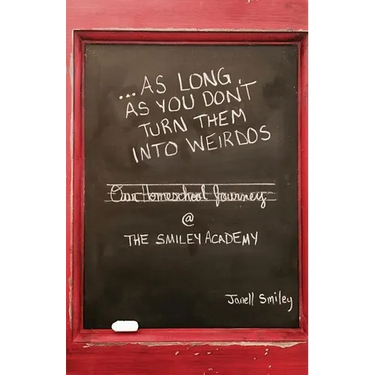 ...AS LONG,
AS YOU DON'T
TURN THEM
INTO WEIRDOS
Our Homeschool Journey
@
THE SMILEY ACADEMY
Janell Smiley